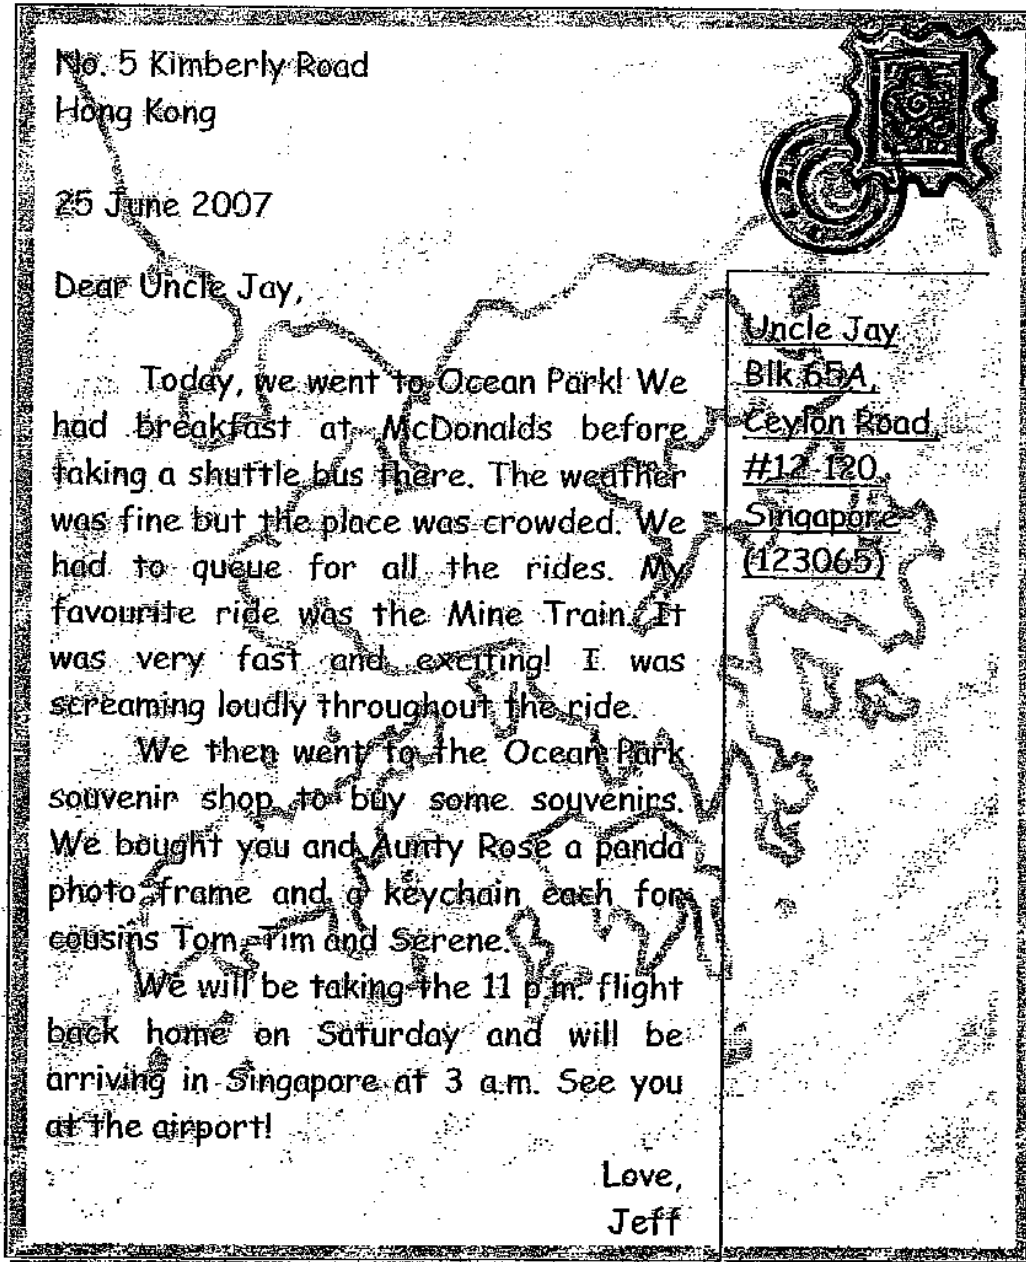 No. 5 Kimberly Road
Hong Kong
25 June 2007
Dear Uncle Jay,
Today, we went to Ocean Park! We
had breakfast at McDonalds before
taking a shuttle bus there. The weather
was fine but the place was crowded. We
had to queue for all the rides. My
favourite ride was the Mine Train. It
was very fast and exciting! I was
screaming loudly throughout the ride.
We then went to the Ocean Park
souvenir shop to buy some souvenirs.
We bought you and Aunty Rose a panda
photo frame and a keychain each for
cousins Tom, Tim and Serene.
We will be taking the 11 p.m. flight
back home on Saturday and will be
arriving in Singapore at 3 a.m. See you
at the airport!
Love,
Jeff
Uncle Jay
Blk 65A,
Ceylon Road,
#12-120,
Singapore
(123065)